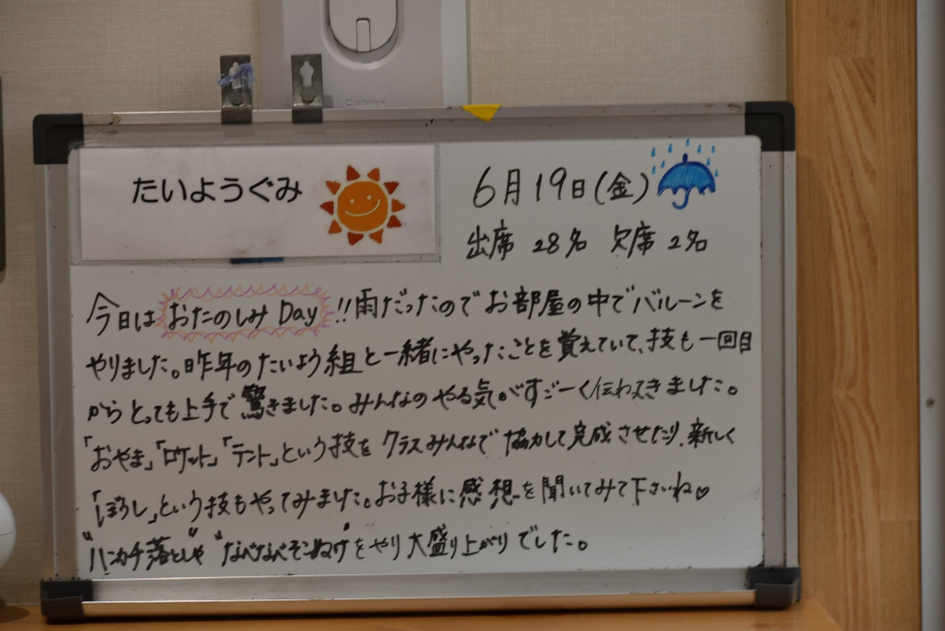 Cables
たいようぐみ
6月19日(金)
出席 28名 欠席 2名
今日は おたのしみ Day !! 雨だったので お部屋の中で バルーンを
やりました。昨年の たいよう組 と 一緒に やった ことを 覚えていて、技も 一回目
から とっても 上手で 驚きました。みんなの やる気が すごーく 伝わってきました。
「おやま」「ロケット」「テント」という技を クラスみんなで 協力して 完成 させたり、新しく
「ぼうし」という 技も やって みました。お子様に 感想を 聞いてみて 下さいね♡
"ハンカチ落とし"や "なべなべそこぬけ"をやり 大盛り上がり でした。